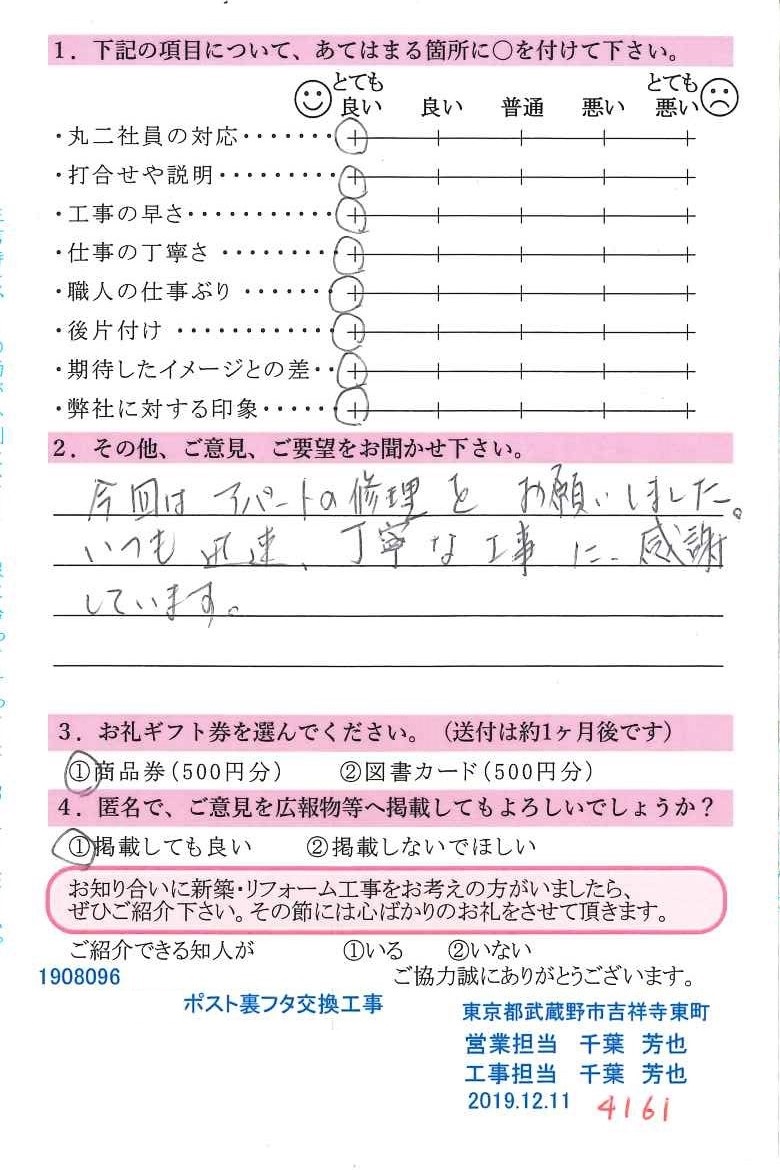 1. 下記の項目について、あてはまる箇所に○を付けて下さい。
とても良い 良い 普通 悪い とても悪い
・丸二社員の対応・・・・・・・
・打合せや説明・・・・・・・・・
・工事の早さ・・・・・・・・・・・
・仕事の丁寧さ ・・・・・・・・
・職人の仕事ぶり ・・・・・・・
・後片付け ・・・・・・・・・・・
・期待したイメージとの差・・
・弊社に対する印象・・・・・・
2. その他、ご意見、ご要望をお聞かせ下さい。
今回はアパートの修理をお願いしました。
いつも迅速、丁寧な工事に感謝
しています。
3. お礼ギフト券を選んでください。(送付は約1ヶ月後です)
①商品券(500円分) ②図書カード(500円分)
4. 匿名で、ご意見を広報物等へ掲載してもよろしいでしょうか?
①掲載しても良い ②掲載しないでほしい
お知り合いに新築・リフォーム工事をお考えの方がいましたら、
ぜひご紹介下さい。その節には心ばかりのお礼をさせて頂きます。
ご紹介できる知人が ①いる ②いない
1908096 ご協力誠にありがとうございます。
ポスト裏フタ交換工事 東京都武蔵野市吉祥寺東町
営業担当 千葉 芳也
工事担当 千葉 芳也
2019.12.11 4161